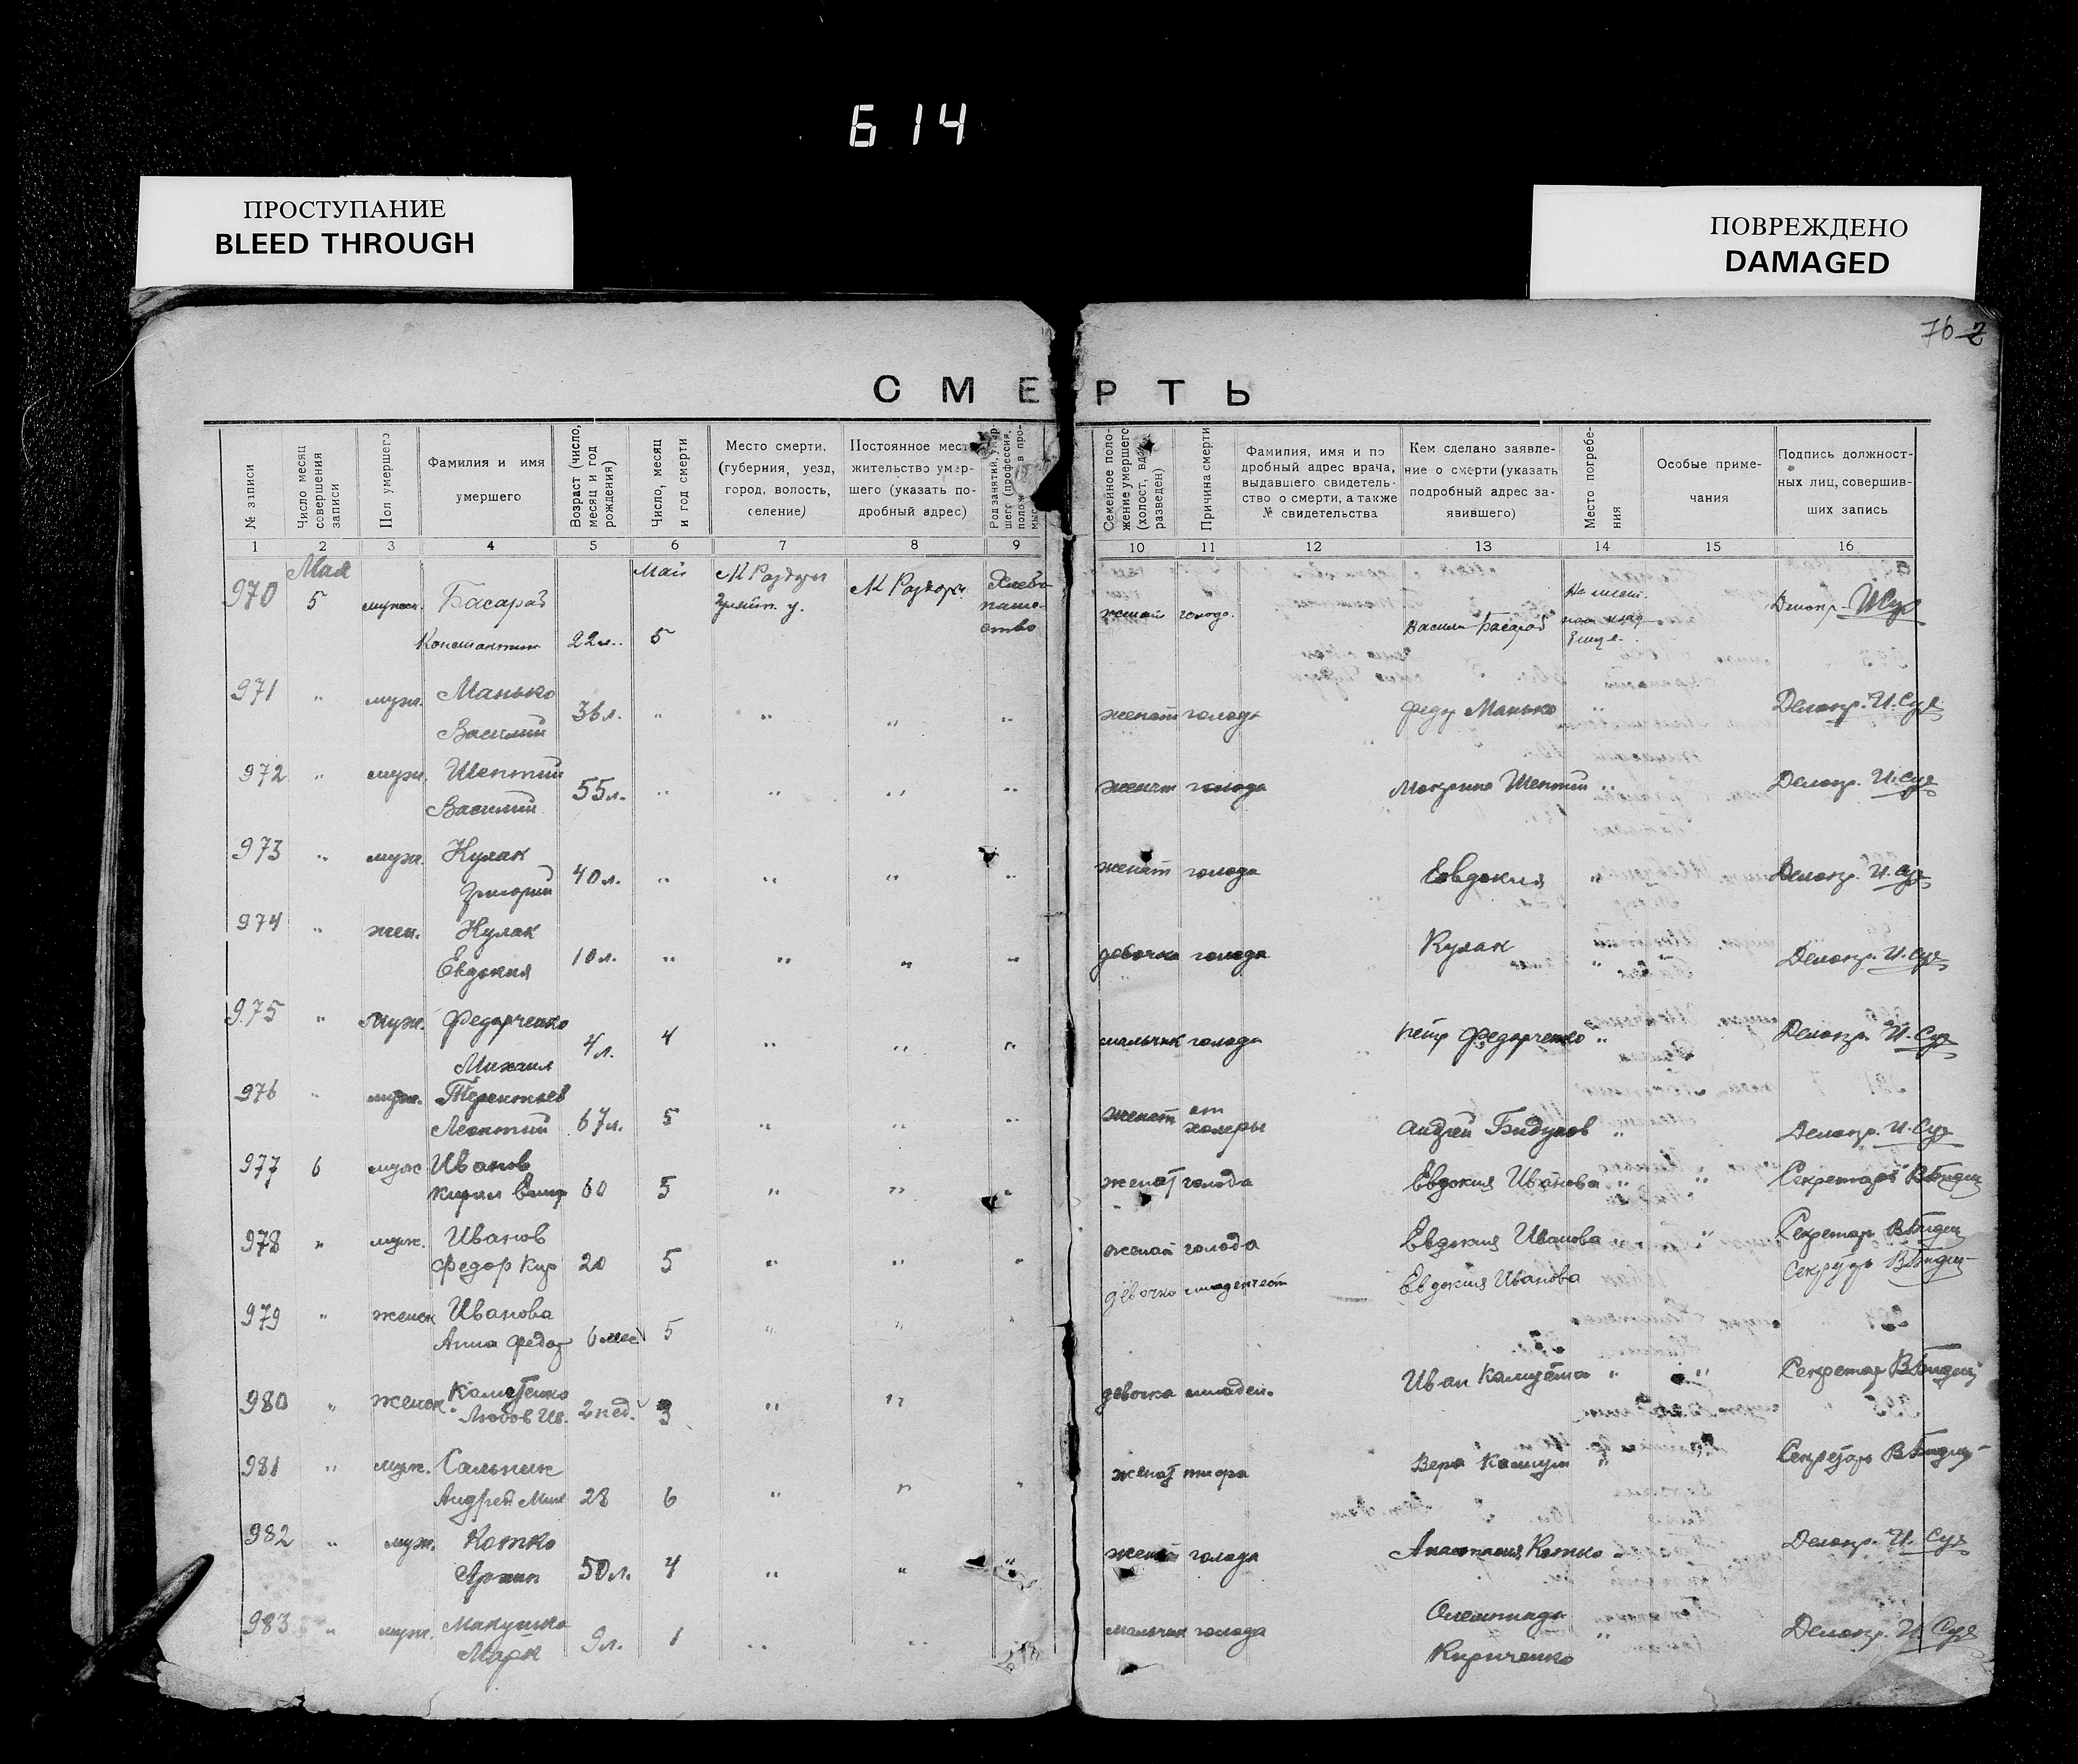 614
ПРОСТУПАНИЕ
BLEED THROUGH
ПОВРЕЖДЕНО
DAMAGED
76 2
СМЕРТЬ
№ записи
Число месяц совершения записи
Пол умершего
Фамилия и имя умершего
Возраст (число, месяц и год рождения)
Число, месяц и год смерти
Место смерти, (губерния, уезд, город, волость, селение)
Постоянное место жительство умершего (указать подробный адрес)
Семейное положение умершего (холост, вдов, разведен)
Причина смерти
Фамилия, имя и подробный адрес врача, выдавшего свидетельство о смерти, а также № свидетельства
Кем сделано заявление о смерти (указать подробный адрес заявившего)
Место погребения
Особые примечания
Подпись должностных лиц, совершивших запись
1 2 3 4 5 6 7 8 9 10 11 12 13 14 15 16
970 Мая 5 Басараб Май М Раздоры М Раздоры Хлебо-
паше-
ство
Константин 22л. 5 женат голода Василий Басараб Делопр. И Сух
971 " муж. Манько
Василий 36л. " " " " женат голода Федор Манько " Делопр. И. Сух
972 " муж. Шептий
Василий 55л. " " " " женат голода Шептий " Делопр. И. Сух
973 " муж. Кулак
Григорий 40л. " " " " женат голода Евдокия " Делопр. И. Сух
974 " жен. Кулак
Евдокия 10л. " " " " девочка голода Кулак " Делопр. И. Сух
975 " муж. Федорченко
Михаил 4л. 4 " " " мальчик голода Петр Федорченко " Делопр. И. Сух
976 " муж. Терентьев
Леонтий 67л. 5 " " " женат от
холеры Андрей " Делопр. И. Сух
977 6 муж Иванов
Кирил 60 5 " " " женат голода Евдокия Иванова " " Секретарь
978 " муж. Иванов
Федор Кир 20 5 " " " женат голода Евдокия Иванова " Секретар
979 " женск Иванова
Анна Федор 6 мес 5 " " " девочка Евдокия Иванова Секретарь
980 " женск
Любов Ив. 2 нед. 3 " " девочка младен. Иван " " Секретар
981 " муж. Сальник
Андрей Мих 28 6 " " " женат тифа Вера " Секретарь
982 " муж. Котко
Архип 50л. 4 " " " женат голода Анастасия Котко " Делопр. И. Сух
983 " муж. Макушко
Марк 9л. 1 " " мальчик голода Олемпиада
Кириченко " Делопр. И Сух